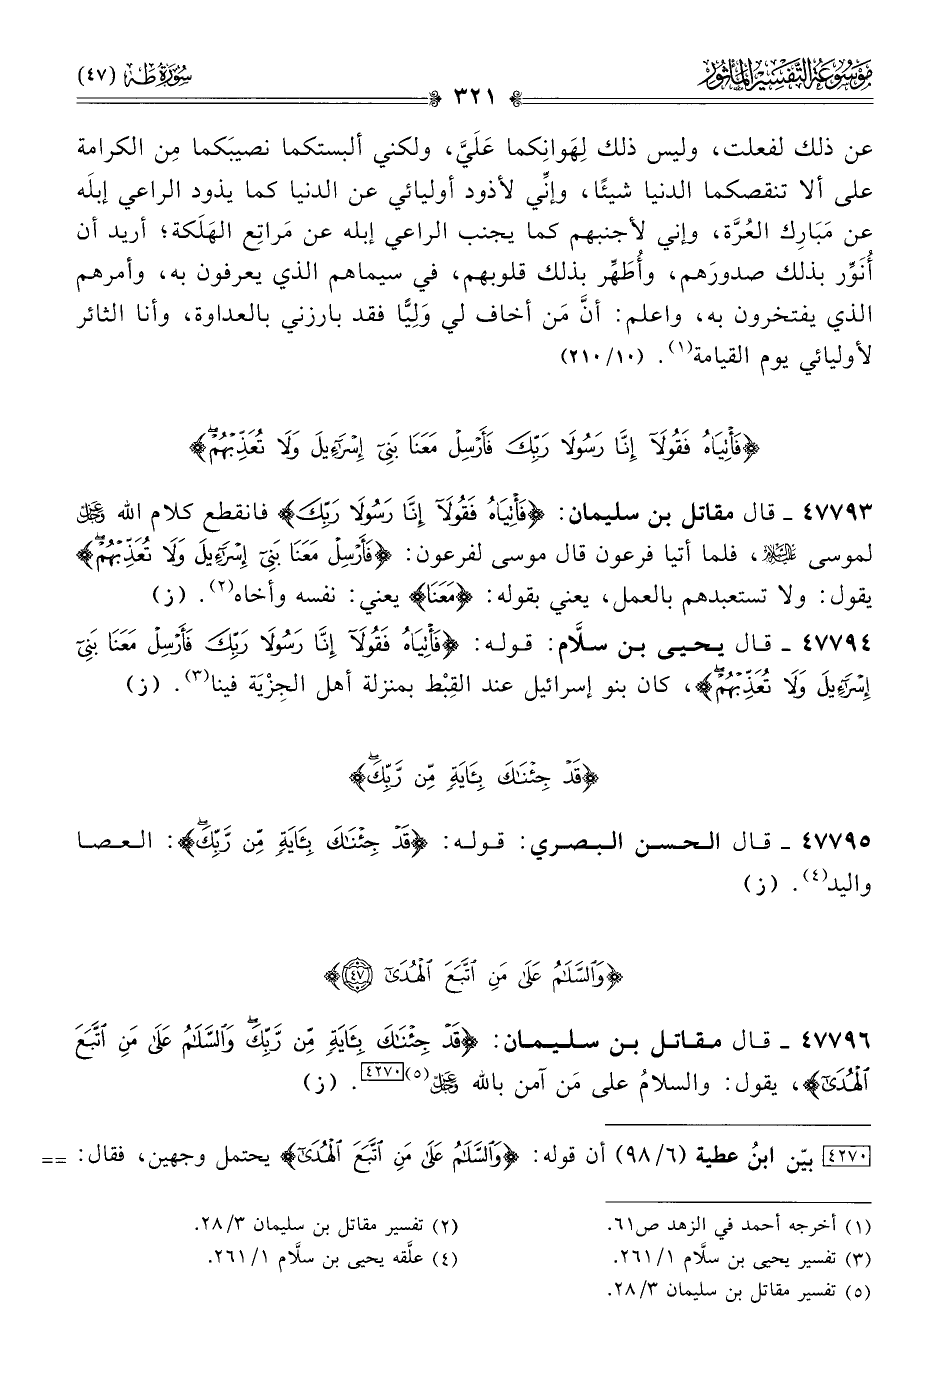 مَوْسُوعَةُ التَّفْسِيرِ المَأْثُور
سُورَةُ طه (٤٧)
٣٢١
عن ذلك لفعلت، وليس ذلك لِهَوانِكما عَلَيَّ، ولكني ألبستكما نصيبَكما مِن الكرامة
على ألا تنقصكما الدنيا شيئًا، وإنِّي لأذود أوليائي عن الدنيا كما يذود الراعي إبلَه
عن مَبَارِك العُرَّة، وإني لأجنبهم كما يجنب الراعي إبله عن مَراتِع الهَلَكة؛ أريد أن
أُنَوِّر بذلك صدورَهم، وأُطَهِّر بذلك قلوبهم، في سيماهم الذي يعرفون به، وأمرهم
الذي يفتخرون به، واعلم: أنَّ مَن أخاف لي وَلِيًّا فقد بارزني بالعداوة، وأنا الثائر
لأوليائي يوم القيامة(١). (٢١٠/١٠)
﴿فَأْتِيَاهُ فَقُولَآ إِنَّا رَسُولَا رَبِّكَ فَأَرْسِلْ مَعَنَا بَنِىٓ إِسْرَٰٓءِيلَ وَلَا تُعَذِّبْهُمْۖ﴾
٤٧٧٩٣ ـ قال مقاتل بن سليمان: ﴿فَأْتِيَاهُ فَقُولَآ إِنَّا رَسُولَا رَبِّكَ﴾ فانقطع كلام الله ﷿
لموسى ﵇، فلما أتيا فرعون قال موسى لفرعون: ﴿فَأَرْسِلْ مَعَنَا بَنِىٓ إِسْرَٰٓءِيلَ وَلَا تُعَذِّبْهُمْۖ﴾
يقول: ولا تستعبدهم بالعمل، يعني بقوله: ﴿مَعَنَا﴾ يعني: نفسه وأخاه(٢). (ز)
٤٧٧٩٤ ـ قال يحيى بن سلَّام: قوله: ﴿فَأْتِيَاهُ فَقُولَآ إِنَّا رَسُولَا رَبِّكَ فَأَرْسِلْ مَعَنَا بَنِىٓ
إِسْرَٰٓءِيلَ وَلَا تُعَذِّبْهُمْۖ﴾، كان بنو إسرائيل عند القِبْط بمنزلة أهل الجِزْيَة فينا(٣). (ز)
﴿قَدْ جِئْنَٰكَ بِـَٔايَةٍ مِّن رَّبِّكَۖ﴾
٤٧٧٩٥ ـ قال الحسن البصري: قوله: ﴿قَدْ جِئْنَٰكَ بِـَٔايَةٍ مِّن رَّبِّكَۖ﴾: العصا
واليد(٤). (ز)
﴿وَالسَّلَٰمُ عَلَىٰ مَنِ ٱتَّبَعَ ٱلْهُدَىٰٓ ٤٧﴾
٤٧٧٩٦ ـ قال مقاتل بن سليمان: ﴿قَدْ جِئْنَٰكَ بِـَٔايَةٍ مِّن رَّبِّكَۖ وَالسَّلَٰمُ عَلَىٰ مَنِ ٱتَّبَعَ
ٱلْهُدَىٰٓ﴾، يقول: والسلامُ على مَن آمن بالله ﷿(٥)[٤٢٧٠]. (ز)
[٤٢٧٠] بيّن ابنُ عطية (٩٨/٦) أن قوله: ﴿وَالسَّلَٰمُ عَلَىٰ مَنِ ٱتَّبَعَ ٱلْهُدَىٰٓ﴾ يحتمل وجهين، فقال: ==
(١) أخرجه أحمد في الزهد ص٦١.
(٢) تفسير مقاتل بن سليمان ٢٨/٣.
(٣) تفسير يحيى بن سلَّام ٢٦١/١.
(٤) علَّقه يحيى بن سلَّام ٢٦١/١.
(٥) تفسير مقاتل بن سليمان ٢٨/٣.